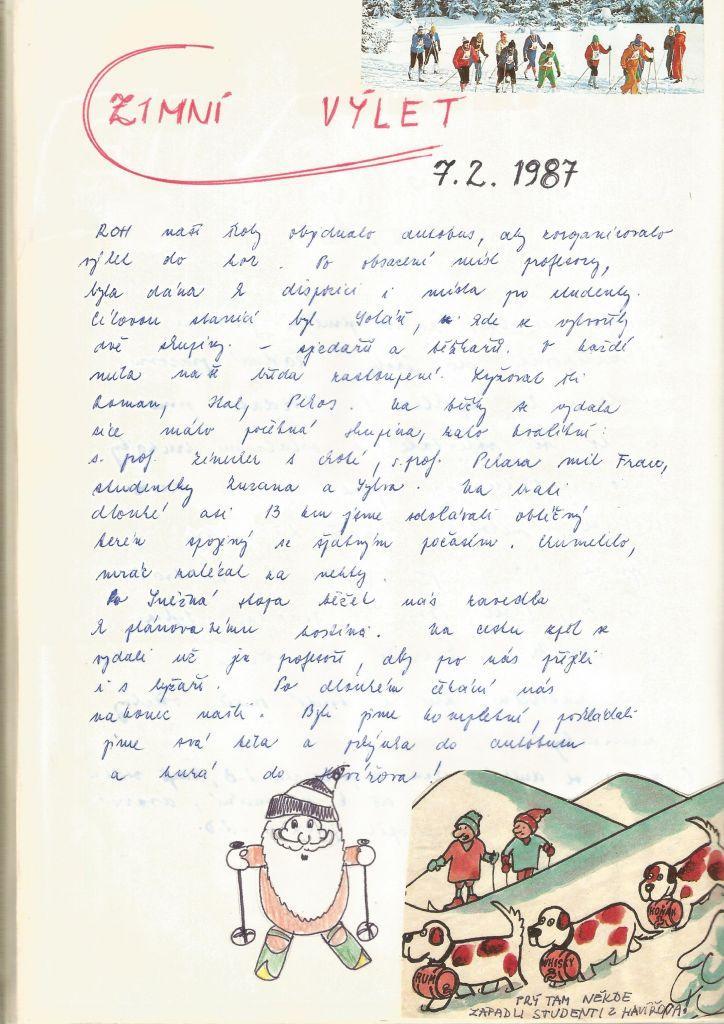 ZIMNÍ VÝLET
7.2. 1987
ROH naší školy objednalo autobus, aby zorganizovalo
výlet do hor. Po obsazení míst profesory,
byla dána k dispozici i místa pro studenty.
Cílovou stanicí byl kde se vytvořily
dvě skupiny. – sjezdařů a běžkařů. V každé
měla naše třída zastoupení. Lyžovat šli
Roman, Peros. Na běžky se vydala
sice málo početná skupina, zato kvalitní:
s. prof. s chotí, s. prof. mil
studentky Zuzana a Sylva. Na trati
dlouhé asi 13 km jsme zdolávali obtížný
terén spojený se špatným počasím. Chumelilo,
mráz zalézal za nehty.
Sněžná stopa běžek nás zavedla
k plánovanému hostinci. Na cestu zpět se
vydali už jen profesoři, aby pro nás přijeli
i s lyžaři. Po dlouhém čekání nás
nakonec našli. Byli jsme kompletní, poskládali
jsme svá těla a do autobusu
a hurá do Havířova!
RUM
WHISKY
KOŇAK
PRÝ TAM NĚKDE
ZAPADLI STUDENTI Z HAVÍŘOVA!